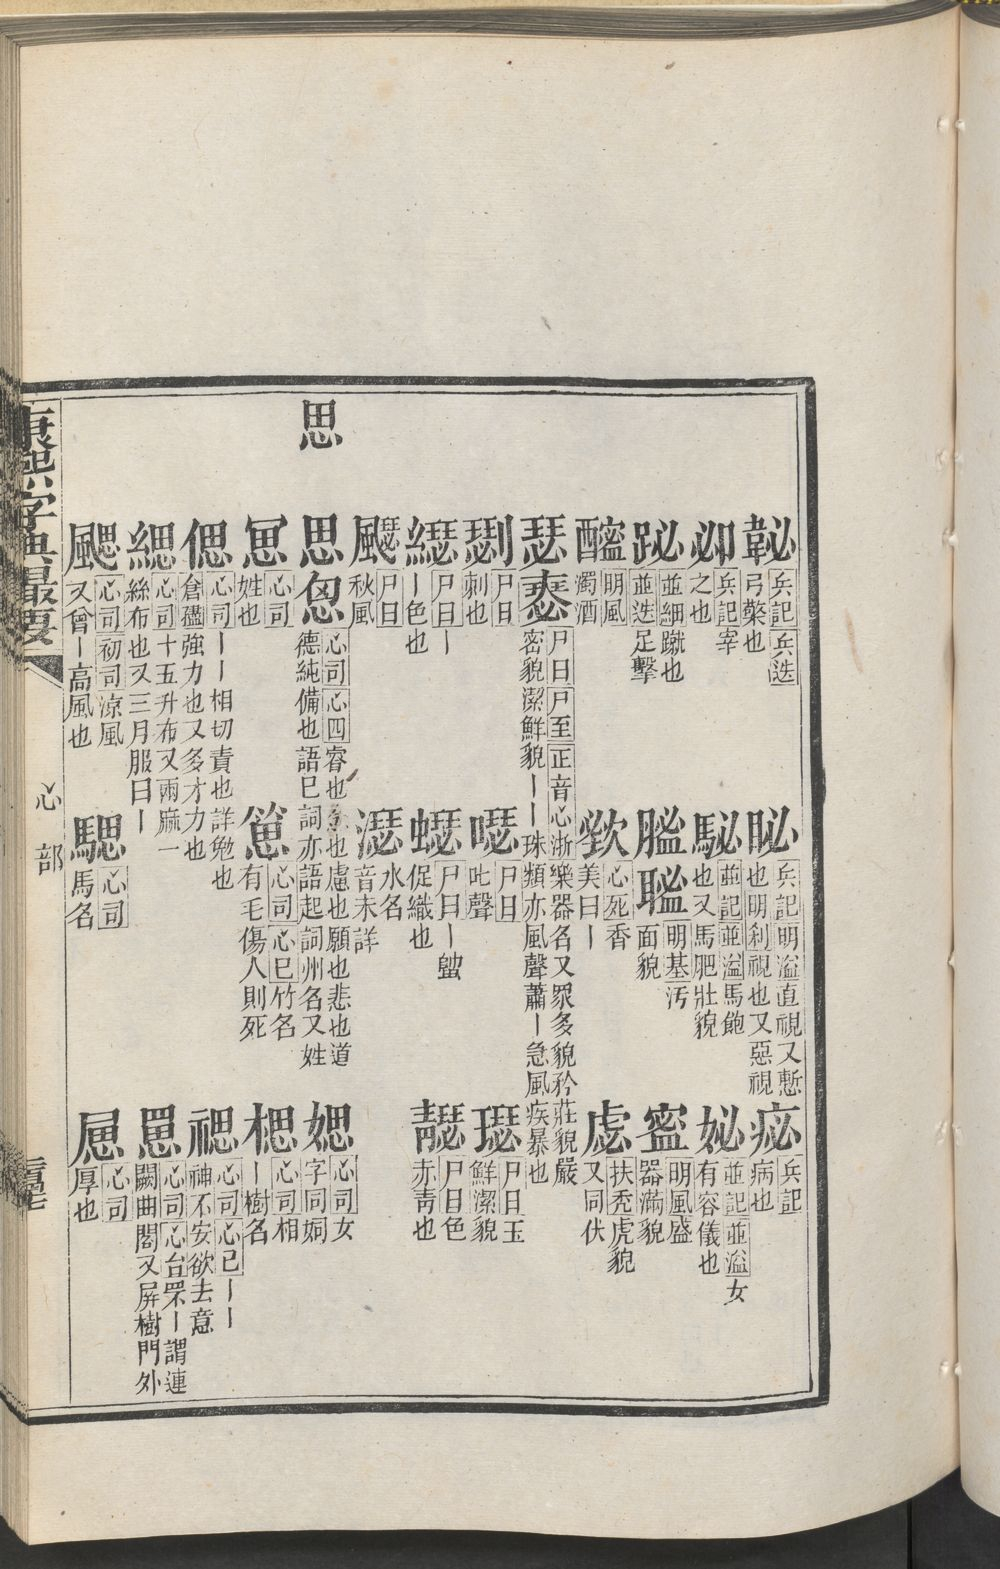 䪐 兵記兵迭弓檠也
眍 兵記明溢直視又慙也明利視也又惡視
㽰 兵記病也
邲 兵記宰之也
駜 並記並溢馬飽也又馬肥壯貌
妼 並記並溢女有容儀也
䟆 並細蹴也並迭足擊
䀄 明基汚面貌
䀄 明風盛器滿貌
醯 明風濁酒
㰷 心死香美曰丨
虙 扶秃虎貌又同伏
瑟 尸日尸至正音心浙樂器名又眾多貌矜莊貌嚴密貌潔鮮貌丨丨珠類亦風聲蕭丨急風疾暴也
尸日刺也
㗭 尸日叱聲
璱 尸日玉鮮潔貌
尸日丨丨色也
蟋 尸日丨蟀促織也
尸日色赤靑也
飋 尸日秋風
濏 水名音未詳
思
思 恖 心司心四睿也念也慮也願也悲也道德純備也語巳詞亦語起詞州名又姓
媤 心司女字同㚸
心司姓也
篃 心司心巳竹名有毛傷人則死
楒 心司相丨樹名
偲 心司丨丨相切責也詳勉也倉𥔵強力也又多才力也
禗 心司心巳丨丨神不安欲去意
緦 心司十五升布又兩麻一絲布也又三月服曰丨
罳 心司心台罘丨謂連闕曲閣又屏樹門外
颸 心司初司涼風又曾丨高風也
騦 心司馬名
心司厚也
康熙字典最要
心部